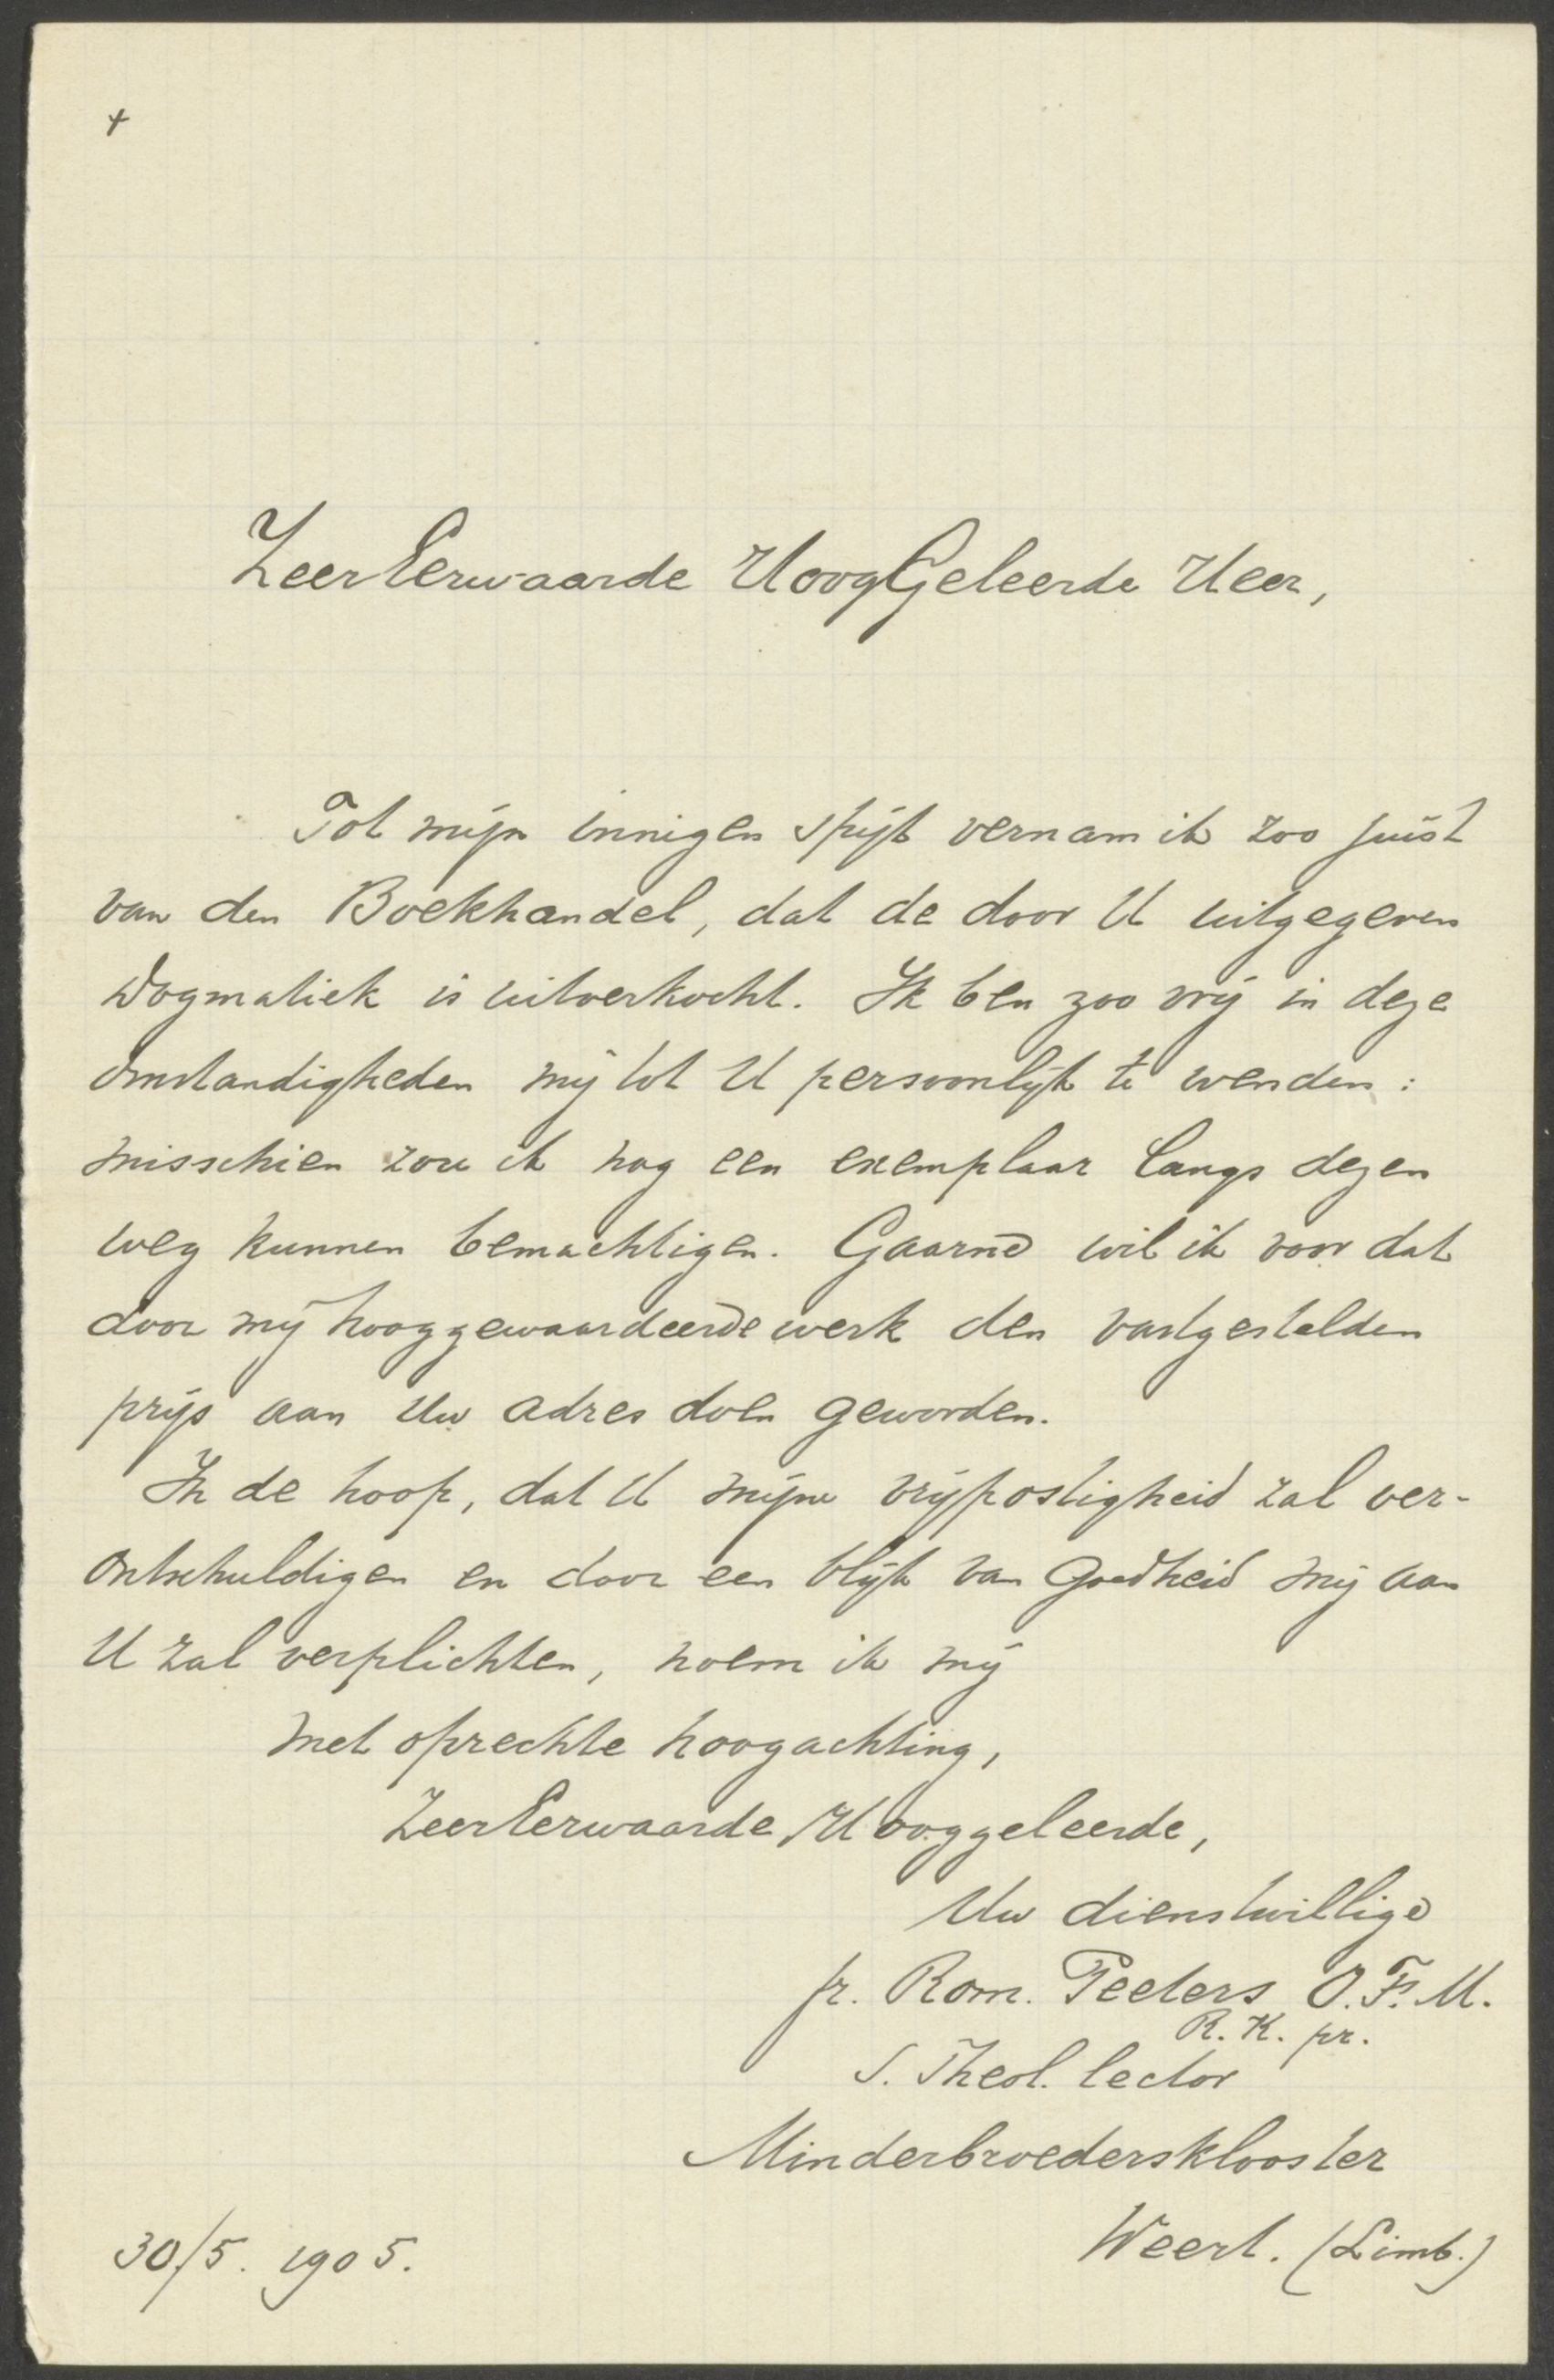 +
ZeerEerwaarde HoogGeleerde Heer,
Tot mijn innigen spijt vernam ik zoo juist
van den Boekhandel, dat de door U uitgegeven
Dogmatiek is uitverkocht. Ik ben zoo vrij in deze
omstandigheden mij tot U persoonlijk te wenden:
misschien zou ik nog een exemplaar langs dezen
weg kunnen bemachtigen. Gaarne wil ik voor dat
door mij hooggewaardeerde werk den vastgestelden
prijs aan Uw adres doen geworden.
In de hoop, dat U mijne vrijpostigheid zal ver-
ontschuldigen en door een blijk van goedheid mij aan
U zal verplichten, noem ik mij
met oprechte hoogachting,
ZeerEerwaarde Hooggeleerde,
Uw dienstwillige
fr. Rom. Peeters O.F.M.
R.K. pr.
S. Theol. lector
Minderbroedersklooster
Weert. (Limb.)
30/5. 1905.